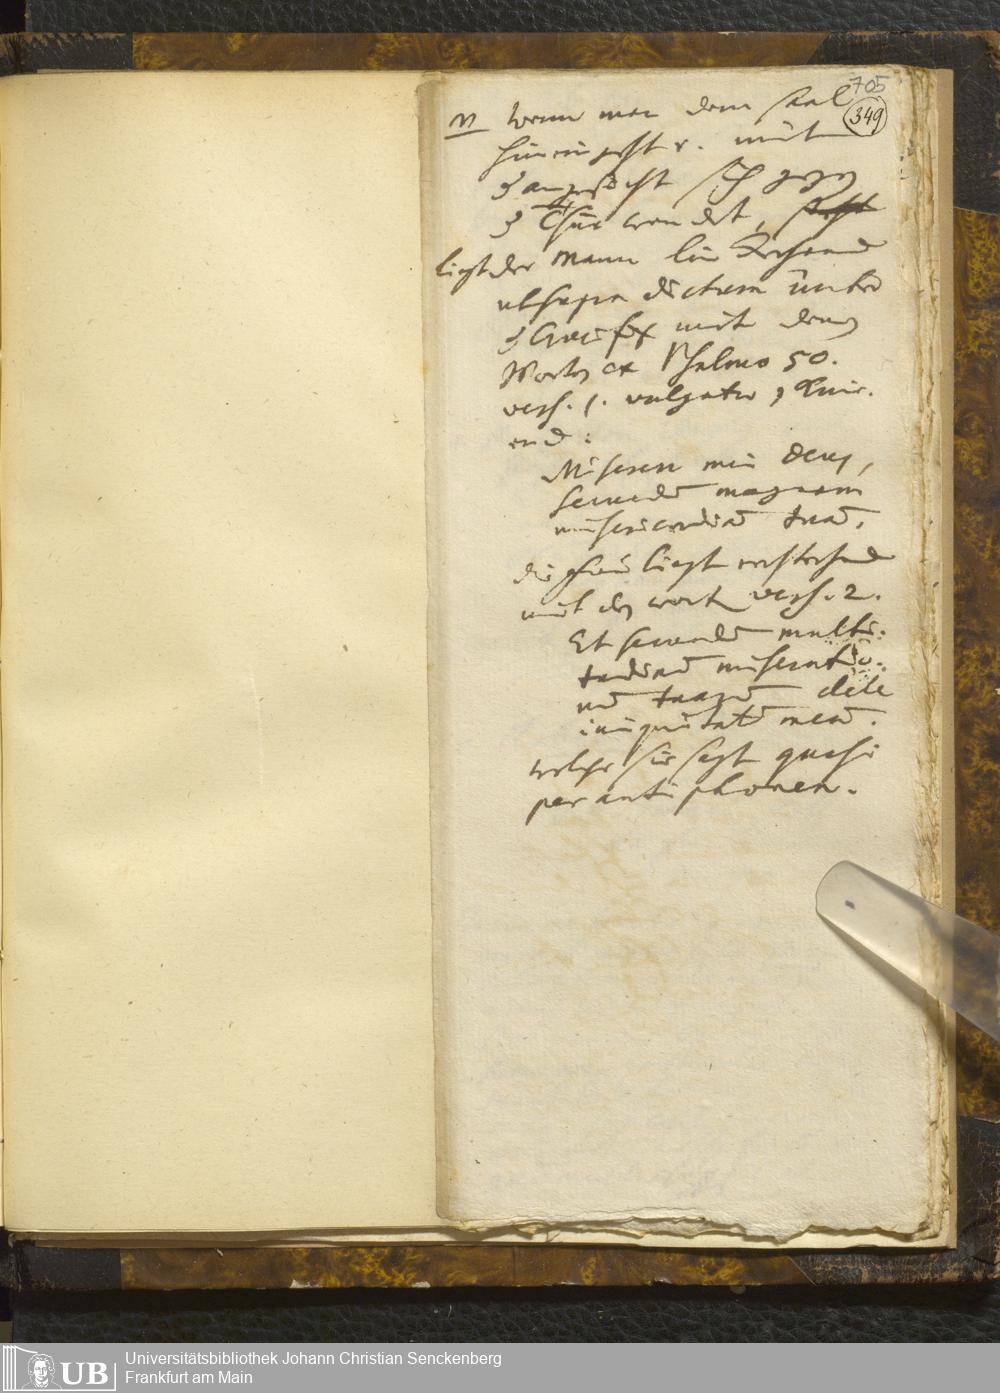 705
349
N wenn man dem saal
hinein geht v. mit
angesicht sich gegen
Thür wendet, steht
ligt der Mann lin
ut supra dictum unter
Crucifix mit den
Worten ex Psalmo 50.
vers. 1. vulgatae
end:
Miserere mei Deus,
secundū magnam
misericordiā tuā,
die frau ligt
mit den wort vers. 2.
Et secundū multi-
tudinē miseratio-
nū tuarū dele
iniquitatē meā.
welche sie sagt quasi
per antiphonen.
UB
Universitätsbibliothek Johann Christian Senckenberg
Frankfurt am Main